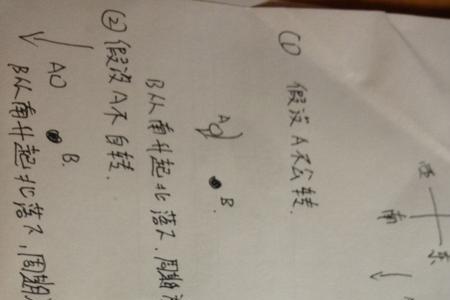 (1) 假设A不公转.
A
B
B从南升起北落下.周期
(2) 假设A不自转.
A
B.
B从南升起北落下,周期
西
南
东